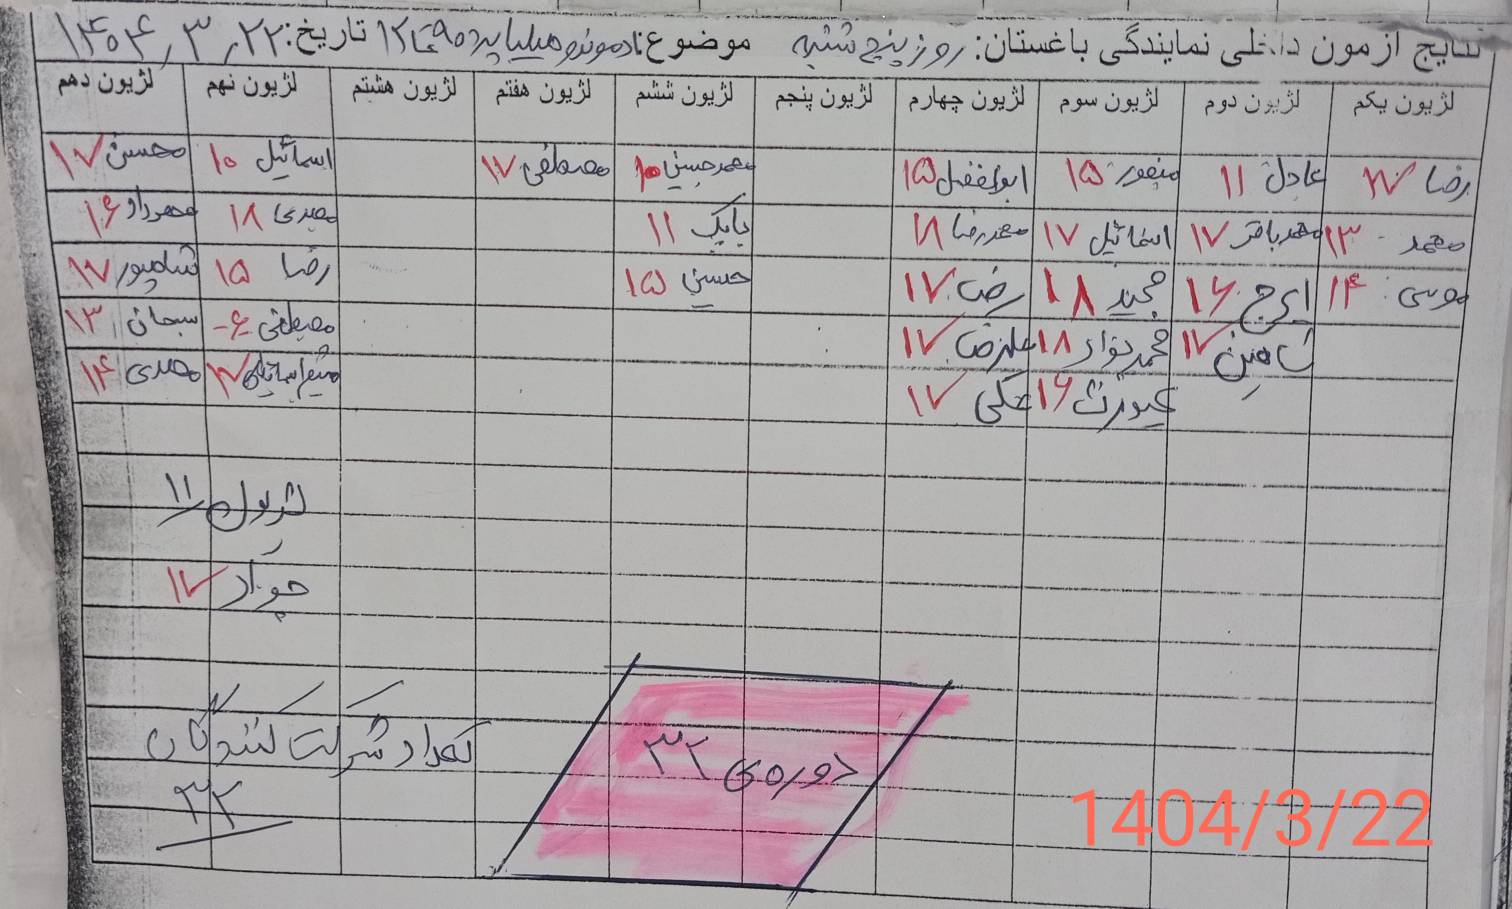 نتایج ازمون داخلی نمایندگی باغستان: روز پنج شنبه موضوع: تاریخ: ۱۴۰۴٫۳٫۲۲
لژیون یکم لژیون دوم لژیون سوم لژیون چهارم لژیون پنجم لژیون ششم لژیون هفتم لژیون هشتم لژیون نهم لژیون دهم
رضا ۱۷ عادل ۱۱ منصور ۱۵ ابوالفضل ۱۵ محمدحسین ۱۰ مصطفی ۱۷ اسمائیل ۱۰ محسن ۱۷
محمد ۱۳ محمدباقر ۱۷ اسمائیل ۱۷ محمدرضا ۱۸ بابک ۱۱ مهدی ۱۸ مهرداد ۱۶
موسی ۱۴ ایرج ۱۶ مجید ۱۸ رضا ۱۷ حسین ۱۵ رضا ۱۵ شاهپور ۱۷
شاهین ۱۷ محمدجواد ۱۸ علیرضا ۱۷ مصطفی ۶ سبحان ۱۳
کیومرث ۱۶ علی ۱۷ ۱۷ مهدی ۱۴
لژیون ۱۱
جواد ۱۷
تعداد شرکت کنندگان
۳۲
دوره‌ی ۳۲
1404/3/22